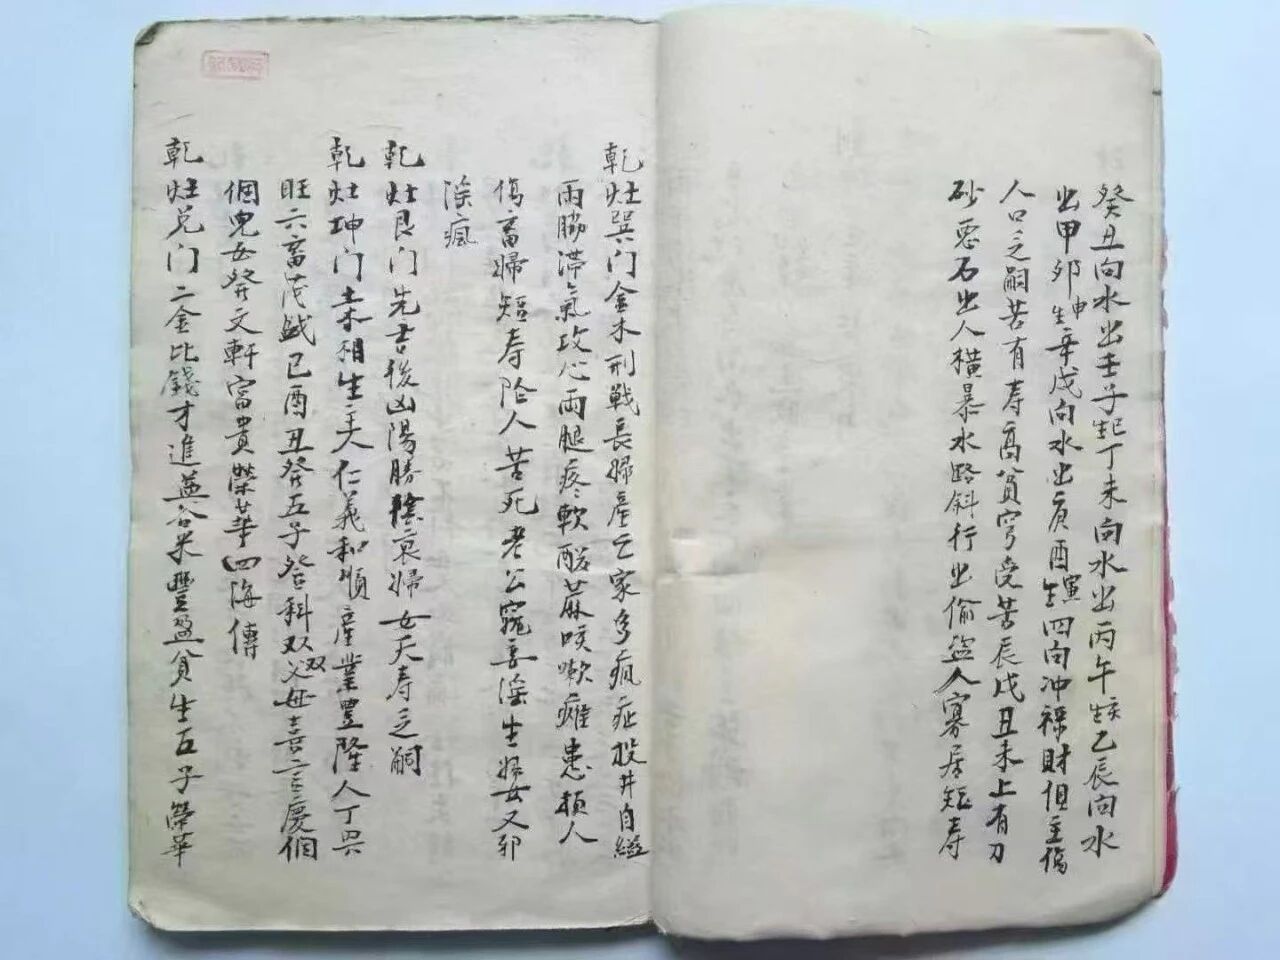 癸丑向水出壬子起丁未向水出丙午亥生乙辰向水
出甲卯申生辛戌向水出庚酉寅生四向冲禄財但主傷
人口乏嗣若有寿高貧窮受苦辰戌丑未上有刀
砂恶石出人横暴水路斜行出偷盗人寡居短寿
乾灶巽门金木刑戰長婦産亡家多瘋症投井自縊
兩脇滞氣攻心兩腿疼軟酸蔴咳嗽癱患損人
傷畜婦短寿陰人苦死老公寵妾淫生婦女又邪
淫瘋
乾灶艮门先吉後凶陽勝陰衰婦女夭寿乏嗣
乾灶坤门土金相生主夫仁義和順産業豊隆人丁興
旺六畜茂盛巳酉丑癸五子登科双双父母喜言慶個
個兒女癸文軒富貴榮華四海傳
乾灶兑门二金比錢才進益谷米豐盈貧生五子榮華